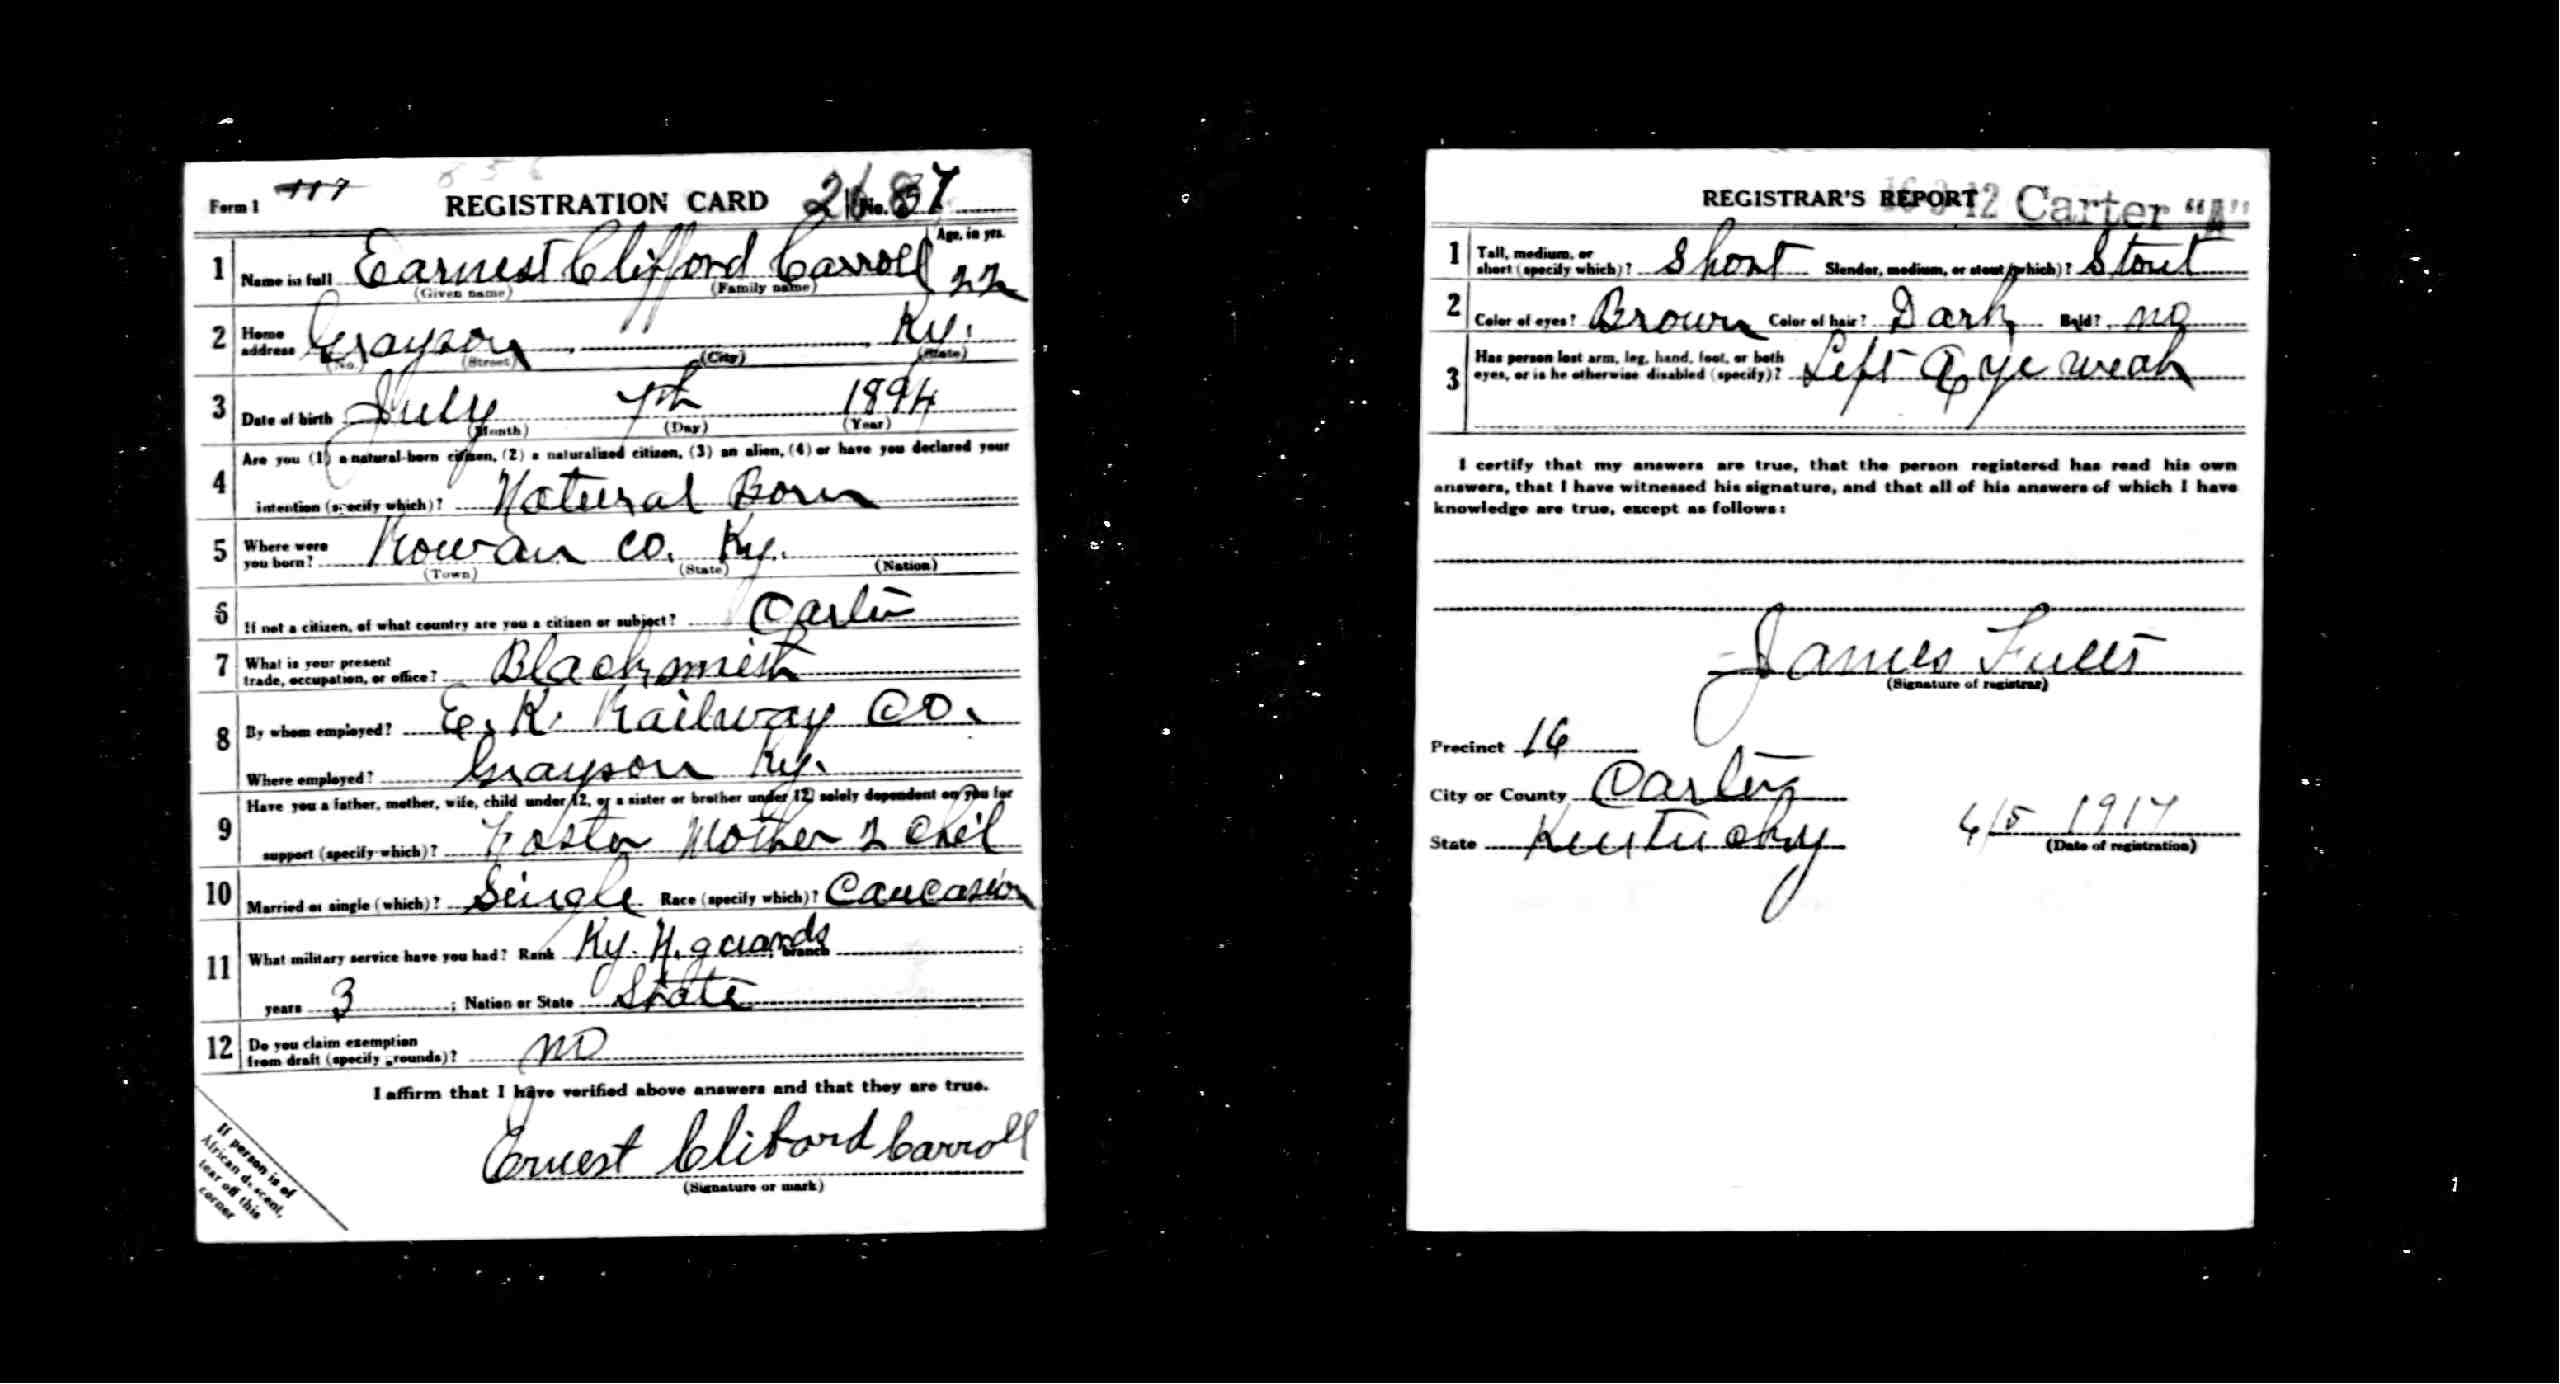 Form 1 117 REGISTRATION CARD No. 87
Age, in yrs.
1 Name in full Earnest Clifford Carroll 22
(Given name) (Family name)
2 Home address Grayson Ky.
(No.) (Street) (City) (State)
3 Date of birth July 7th 1894
(Month) (Day) (Year)
4 Are you (1) a natural-born citizen, (2) a naturalized citizen, (3) an alien, (4) or have you declared your
intention (specify which)? Natural Born
5 Where were you born? Rowan Co. Ky.
(Town) (State) (Nation)
6 If not a citizen, of what country are you a citizen or subject? Carter
7 What is your present trade, occupation, or office? Blacksmith
8 By whom employed? E. K. Railway Co.
Where employed? Grayson Ky.
9 Have you a father, mother, wife, child under 12, or a sister or brother under 12, solely dependent on you for
support (specify which)? Foster Mother 2 Chil
10 Married or single (which)? Single Race (specify which)? Caucasion
11 What military service have you had? Rank Ky. N. guards branch
years 3 ; Nation or State State
12 Do you claim exemption
from draft (specify grounds)? no
I affirm that I have verified above answers and that they are true.
Ernest Cliford Carroll
(Signature or mark)
If person is of
African descent,
tear off this
corner
REGISTRAR'S REPORT 12 Carter "A"
1 Tall, medium, or
short (specify which)? Short Slender, medium, or stout (which)? Stout
2 Color of eyes? Brown Color of hair? Dark Bald? no
3 Has person lost arm, leg, hand, foot, or both
eyes, or is he otherwise disabled (specify)? Left Eye weak
I certify that my answers are true, that the person registered has read his own
answers, that I have witnessed his signature, and that all of his answers of which I have
knowledge are true, except as follows:
James Fults
(Signature of registrar)
Precinct 16
City or County Carter
State Kentucky 6/5 1917
(Date of registration)